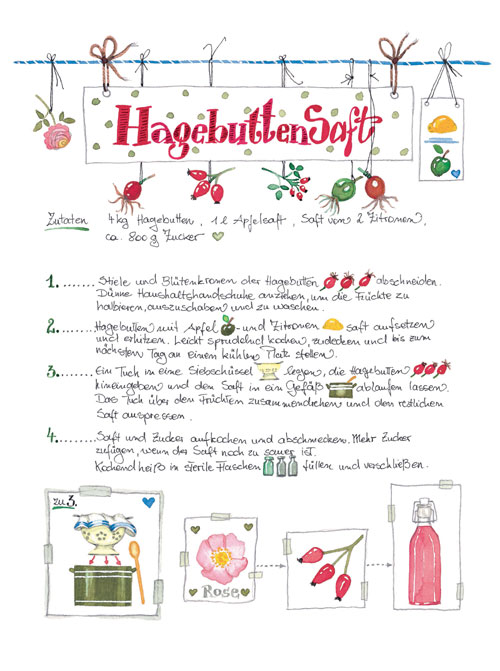 HagebuttenSaft
Zutaten 4 kg Hagebutten, 1 l Apfelsaft, Saft von 2 Zitronen,
ca. 800 g Zucker
1. ........ Stiele und Blütenkronen der Hagebutten abschneiden.
Dünne Haushaltshandschuhe anziehen, um die Früchte zu
halbieren, auszuschaben und zu waschen.
2. ........ Hagebutten mit Apfel - und Zitronen saft aufsetzen
und erhitzen. Leicht sprudelnd kochen, zudecken und bis zum
nächsten Tag an einen kühlen Platz stellen.
3. ........ Ein Tuch in eine Siebschüssel legen, die Hagebutten
hineingeben und den Saft in ein Gefäß ablaufen lassen.
Das Tuch über den Früchten zusammendrehen und den restlichen
Saft auspressen.
4. ........ Saft und Zucker aufkochen und abschmecken. Mehr Zucker
zufügen, wenn der Saft noch zu sauer ist.
Kochend heiß in sterile Flaschen füllen und verschließen.
zu 3.
Rose